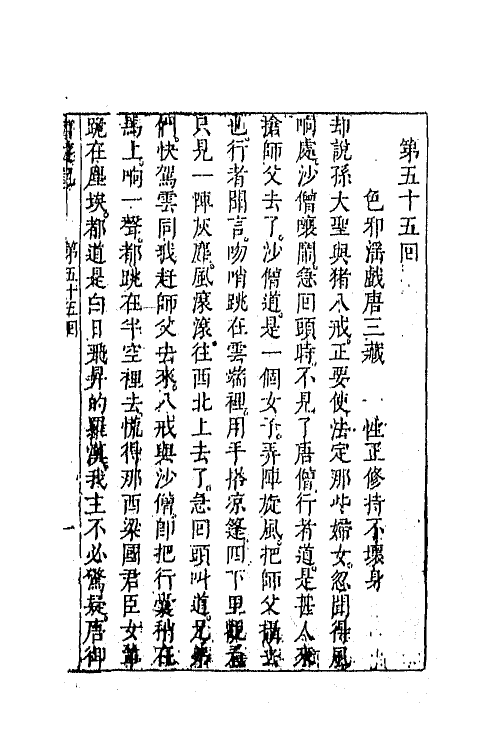 第五十五回
色邪淫戲唐三藏　性正修持不壞身
却說孫大聖與猪八戒正要使法定那些婦女。忽聞得風
响處。沙僧嚷鬧。急回頭時。不見了唐僧。行者道。是甚人來
搶師父去了。沙僧道。是一個女子。弄陣旋風。把師父攝去
也。行者聞言。吻哨跳在雲端裡。用手搭凉篷。四下里觀看
只見一陣灰塵。風滾滾。往西北上去了。急回頭叫道。兄弟
們。快駕雲同我赶師父去來。八戒與沙僧。卽把行囊稍在
馬上。响一聲。都跳在半空裡去。慌得那西梁國君臣女輩
跪在塵埃。都道是白日飛昇的羅漢。我主不必驚疑。唐御
第五十五回
一